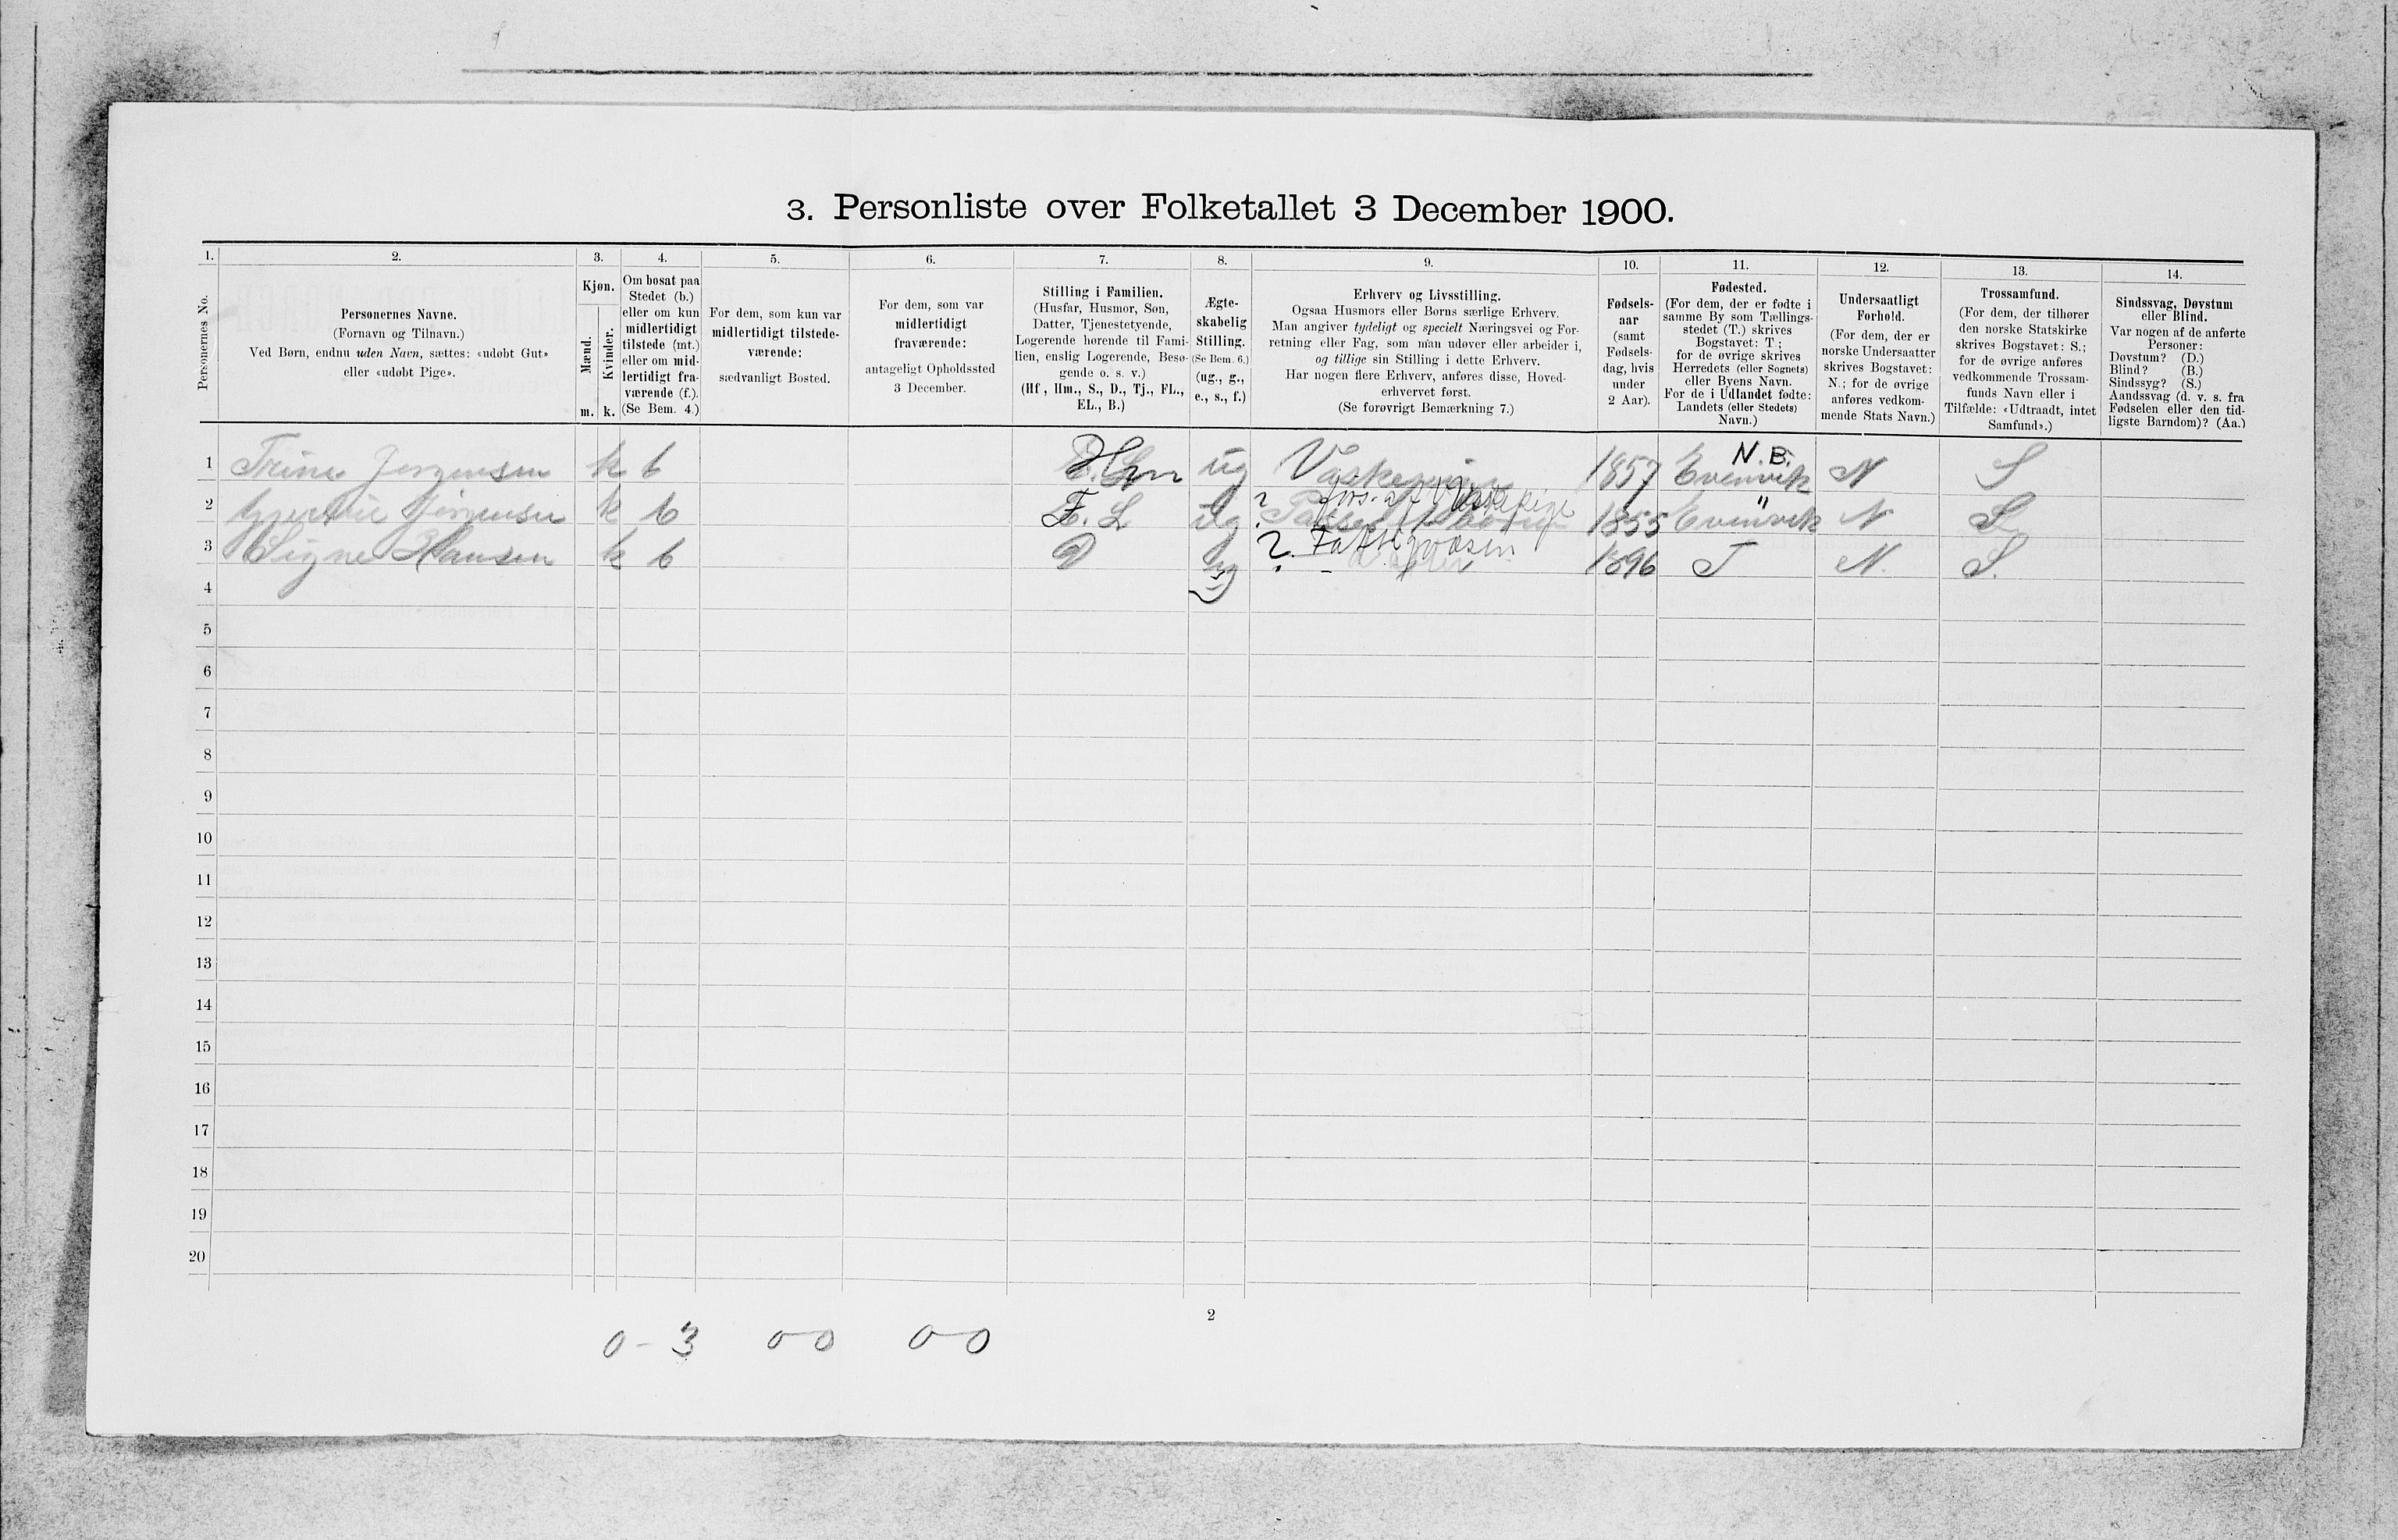 3. Personliste over Folketallet 3 December 1900.
1. 2. 3. 4. 5. 6. 7. 8. 9. 10. 11. 12. 13. 14.
Personernes No.
Personernes Navne.
(Fornavn og Tilnavn.)
Ved Børn, endnu uden Navn, sættes: «udøbt Gut»
eller «udøbt Pige».
Kjøn.
Mænd.
Kvinder.
m. k.
Om bosat paa
Stedet (b.)
eller om kun
midlertidigt
tilstede (mt.)
eller om mid-
lertidigt fra-
værende (f.).
(Se Bem. 4.)
For dem, som kun var
midlertidigt tilstede-
værende:
sædvanligt Bosted.
For dem, som var
midlertidigt
fraværende:
antageligt Opholdssted
3 December.
Stilling i Familien.
(Husfar, Husmor, Søn,
Datter, Tjenestetyende,
Logerende hørende til Fami-
lien, enslig Logerende, Besø-
gende o. s. v.)
(Hf, Hm., S., D., Tj., FL.,
EL., B.)
Ægte-
skabelig
Stilling.
(Se Bem. 6.)
(ug., g.,
e., s., f.)
Erhverv og Livsstilling.
Ogsaa Husmors eller Børns særlige Erhverv.
Man angiver tydeligt og specielt Næringsvei og For-
retning eller Fag, som man udøver eller arbeider i,
og tillige sin Stilling i dette Erhverv.
Har nogen flere Erhverv, anføres disse, Hoved-
erhvervet først.
(Se forøvrigt Bemærkning 7.)
Fødsels-
aar
(samt
Fødsels-
dag, hvis
under
2 Aar).
Fødested.
(For dem, der er fødte i
samme By som Tællings-
stedet (T.) skrives
Bogstavet: T.;
for de øvrige skrives
Herredets (eller Sognets)
eller Byens Navn.
For de i Udlandet fødte:
Landets (eller Stedets)
Navn.)
Undersaatligt
Forhold.
(For dem, der er
norske Undersaatter
skrives Bogstavet:
N.; for de øvrige
anføres vedkom-
mende Stats Navn.)
Trossamfund.
(For dem, der tilhører
den norske Statskirke
skrives Bogstavet: S.;
for de øvrige anføres
vedkommende Trossam-
funds Navn eller i
Tilfælde: «Udtraadt, intet
Samfund».)
Sindssvag, Døvstum
eller Blind.
Var nogen af de anførte
Personer:
Døvstum? (D.)
Blind? (B.)
Sindssyg? (S.)
Aandssvag (d. v. s. fra
Fødselen eller den tid-
ligste Barndom)? (Aa.)
N. B.
1 Trine Jørgensen k b ug 1857 Evenvik N S
? fors. af Vaskepige
2 Jørgensen k b F. L ug 1855 Evenvik N S
? Fattigvæsen
3 Signe Hansen k b D ug 1896 T N. S.
4
5
6
7
8
9
10
11
12
13
14
15
16
17
18
19
20
2
0-3 00 00